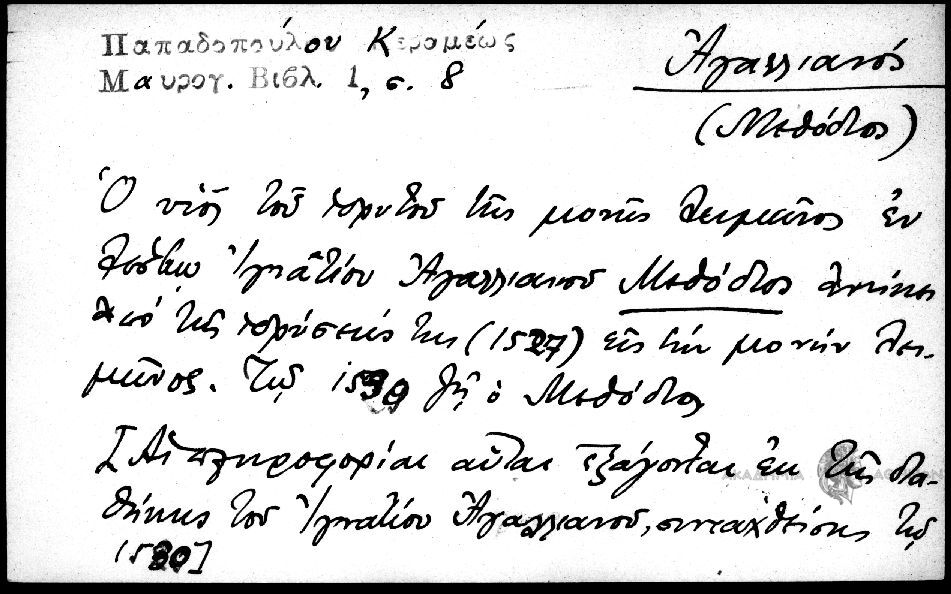 Παπαδοπούλου Κεραμέως
Μαυρογ. Βιβλ. 1, σ. 8
Ἀγαλλιανός
(Μεθόδιος)
Ὁ υἱὸς τοῦ ἱδρυτοῦ τῆς μονῆς Λειμῶνος ἐν
Λέσβῳ Ἰγνατίου Ἀγαλλιανοῦ Μεθόδιος ἀνῆκε
ἀπὸ τῆς ἱδρύσεώς της (1527) εἰς τὴν μονὴν Λει-
μῶνος. Τῷ 1530 ζῇ ὁ Μεθόδιος
[Αἱ πληροφορίαι αὗται ἐξάγονται ἐκ τῆς δια-
θήκης τοῦ Ἰγνατίου Ἀγαλλιανοῦ, συνταχθείσης τῷ
1530]
ΑΚΑΔΗΜΙΑ